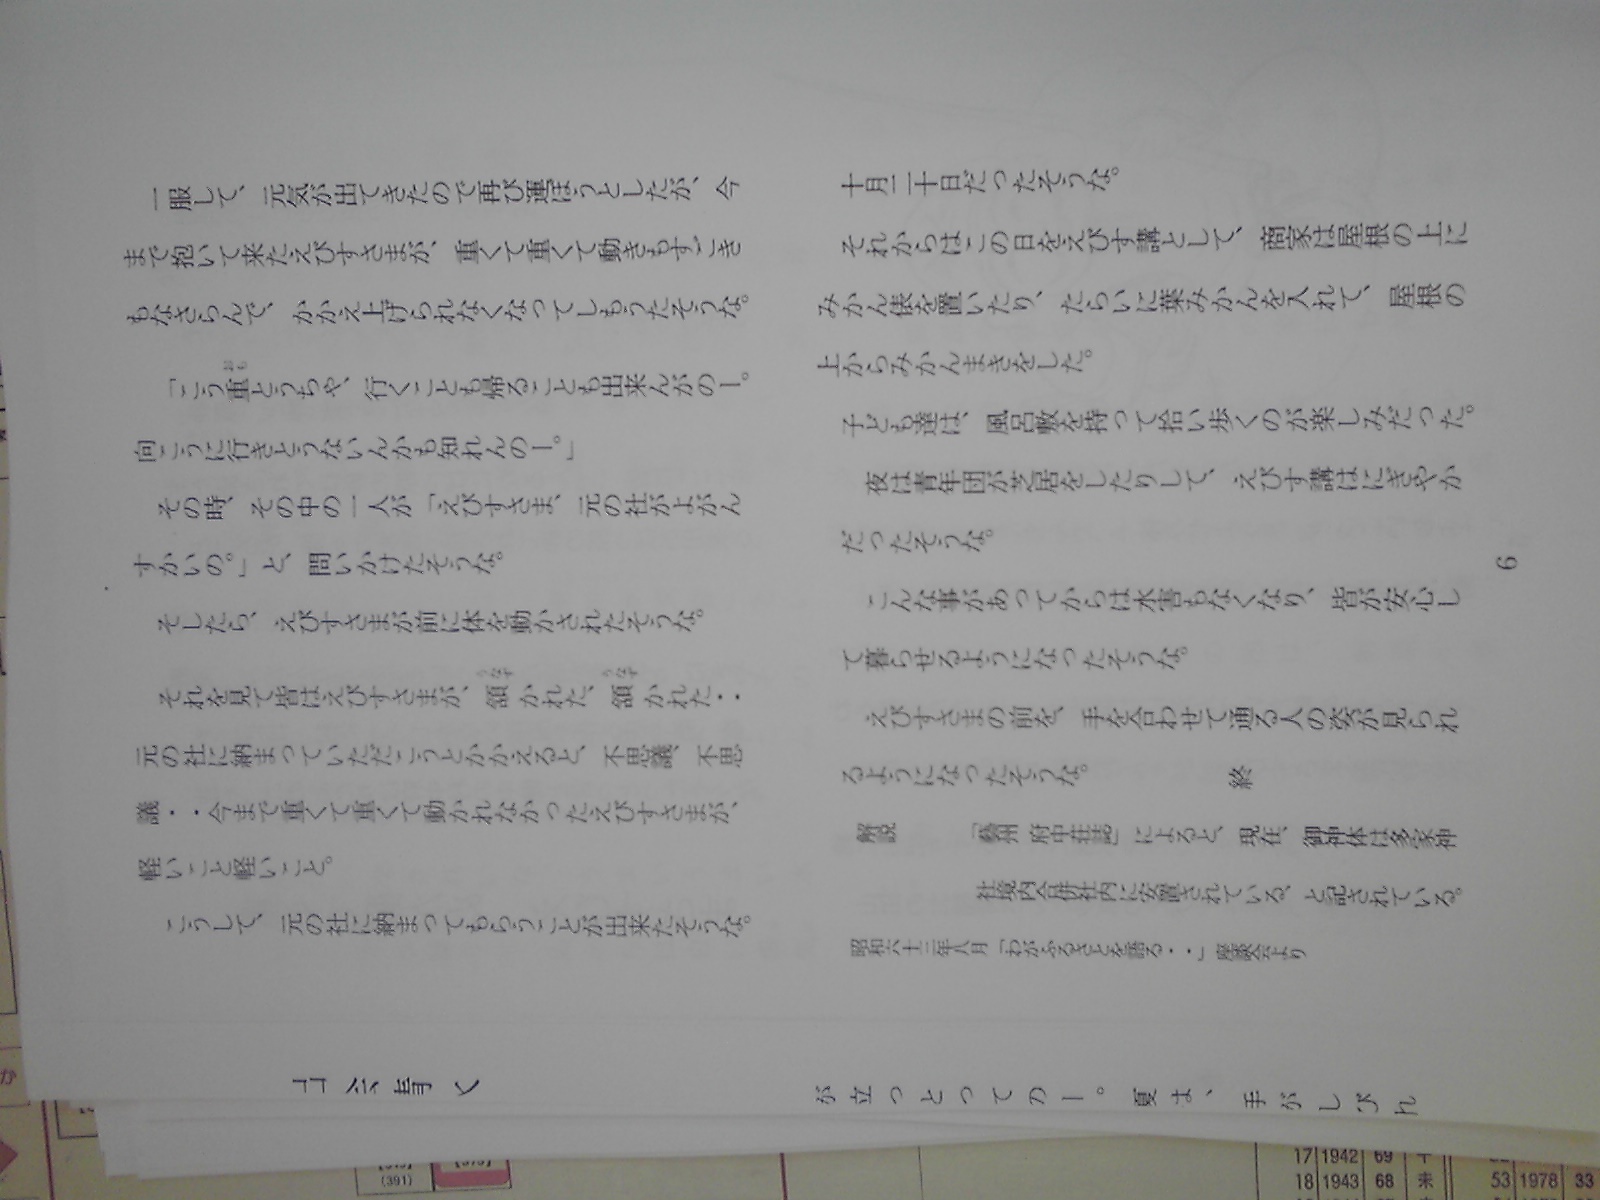 一服して、元気が出てきたので再び運ぼうとしたが、今
まで抱いて来たえびすさまが、重くて重くて動きもすごき
もなさらんで、かかえ上げられなくなってしもうたそうな。
「こう重とうちゃ、行くことも帰ることも出来んがのー。
おも
向こうに行きとうないんかも知れんのー。」
その時、その中の一人が「えびすさま、元の社がよがん
すかいの。」と、問いかけたそうな。
そしたら、えびすさまが前に体を動かされたそうな。
それを見て皆はえびすさまが、頷かれた、頷かれた・・
うなず うなず
元の社に納まっていただこうとかかえると、不思議、不思
議・・今まで重くて重くて動かれなかったえびすさまが、
軽いこと軽いこと。
こうして、元の社に納まってもらうことが出来たそうな。
十月二十日だったそうな。
それからはこの日をえびす講として、商家は屋根の上に
みかん俵を置いたり、たらいに葉みかんを入れて、屋根の
上からみかんまきをした。
子ども達は、風呂敷を持って拾い歩くのが楽しみだった。
夜は青年団が芝居をしたりして、えびす講はにぎやか
だったそうな。
こんな事があってからは水害もなくなり、皆が安心し
て暮らせるようになったそうな。
えびすさまの前を、手を合わせて通る人の姿が見られ
るようになったそうな。 終
解説 「藝州 府中荘誌」によると、現在、御神体は多家神
社境内合併社内に安置されている、と記されている。
昭和六十三年八月「わがふるさとを語る・・」座談会より
が立つとってのー。夏ま、手がしびれ
(391)
17 1942 69
18 1943 68 未
53 1978 33